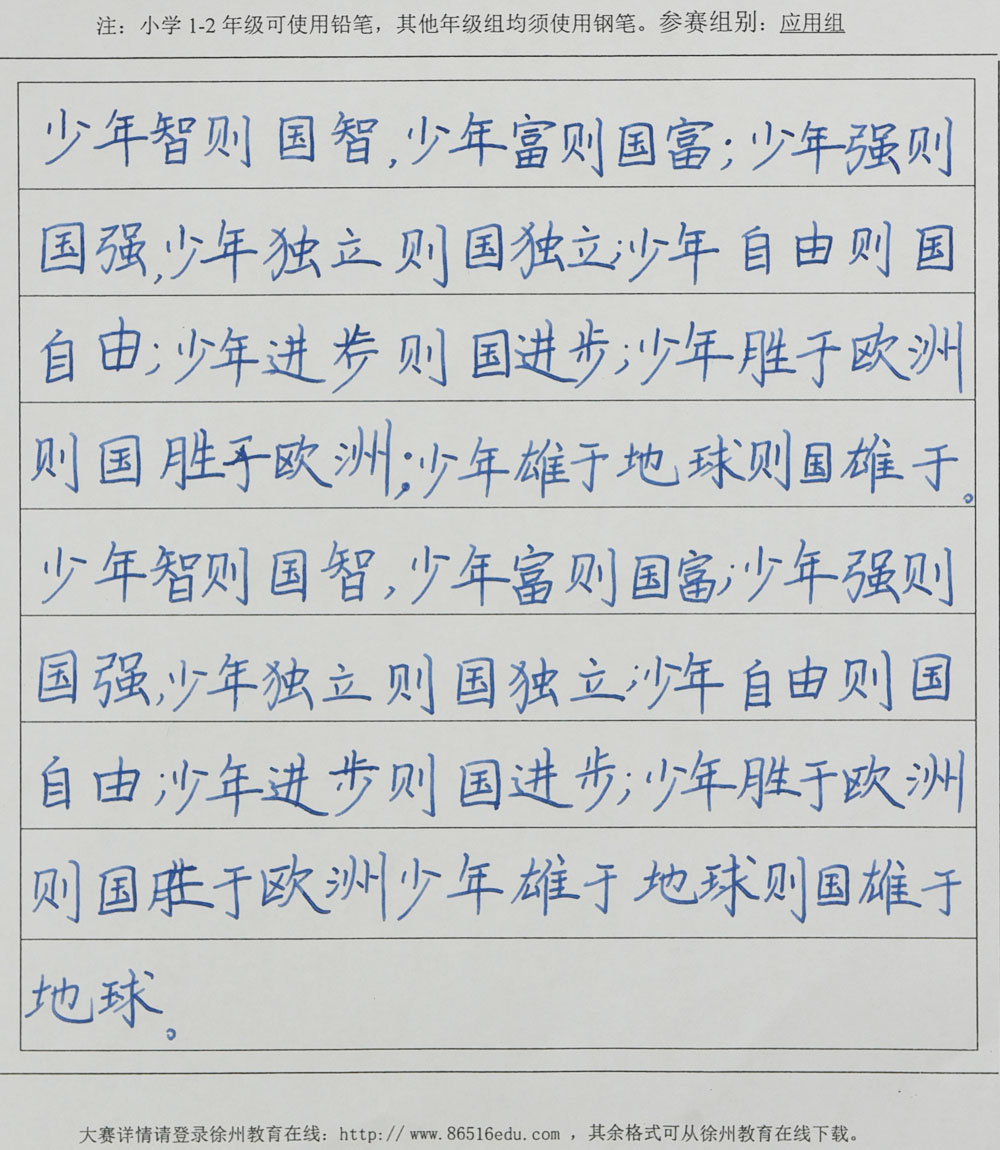 注：小学 1-2 年级可使用铅笔，其他年级组均须使用钢笔。参赛组别：应用组
少年智则国智,少年富则国富;少年强则
国强,少年独立则国独立;少年自由则国
自由;少年进步则国进步;少年胜于欧洲
则国胜于欧洲;少年雄于地球则国雄于。
少年智则国智,少年富则国富;少年强则
国强,少年独立则国独立;少年自由则国
自由;少年进步则国进步;少年胜于欧洲
则国胜于欧洲少年雄于地球则国雄于
地球。
大赛详情请登录徐州教育在线：http://www.86516edu.com ，其余格式可从徐州教育在线下载。